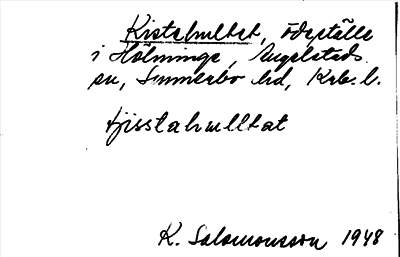 Kristahultet, ödeställe
i Hölminge, Angelstads
sn, Sunnerbo hd, Krb. l.
tjisstahulltat
K. Salomonsson 1948